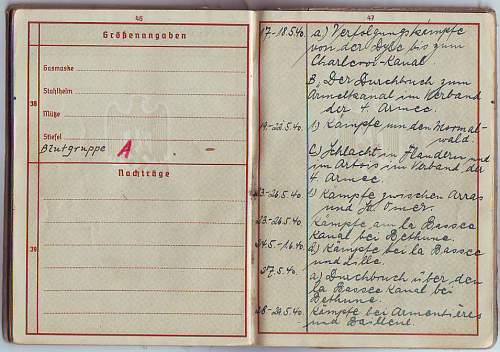 46
Größenangaben
Gasmaske
38
Stahlhelm
Mütze
Stiefel
Blutgruppe A
Nachträge
39
47
17.-18.5.40. a) Verfolgungskämpfe
von der Dyle bis zum
Charleroi-Kanal.
B. Der Durchbruch zum
Ärmelkanal im Verband
der 4. Armee.
b) Kämpfe um den Mormal-
wald.
C) Schlacht in Flandern und
im Artois im Verband der
4. Armee.
Kämpfe zwischen Arras
und St. Omer.
23.-26.5.40 Kämpfe am la Bassee
Kanal bei Bethune.
Kämpfe bei la Bassee
und Lille.
27.5.40. a) Durchbruch über den
la Bassee Kanal bei
Bethune.
28.-29.5.40. Kämpfe bei Armentières
und Bailleul.